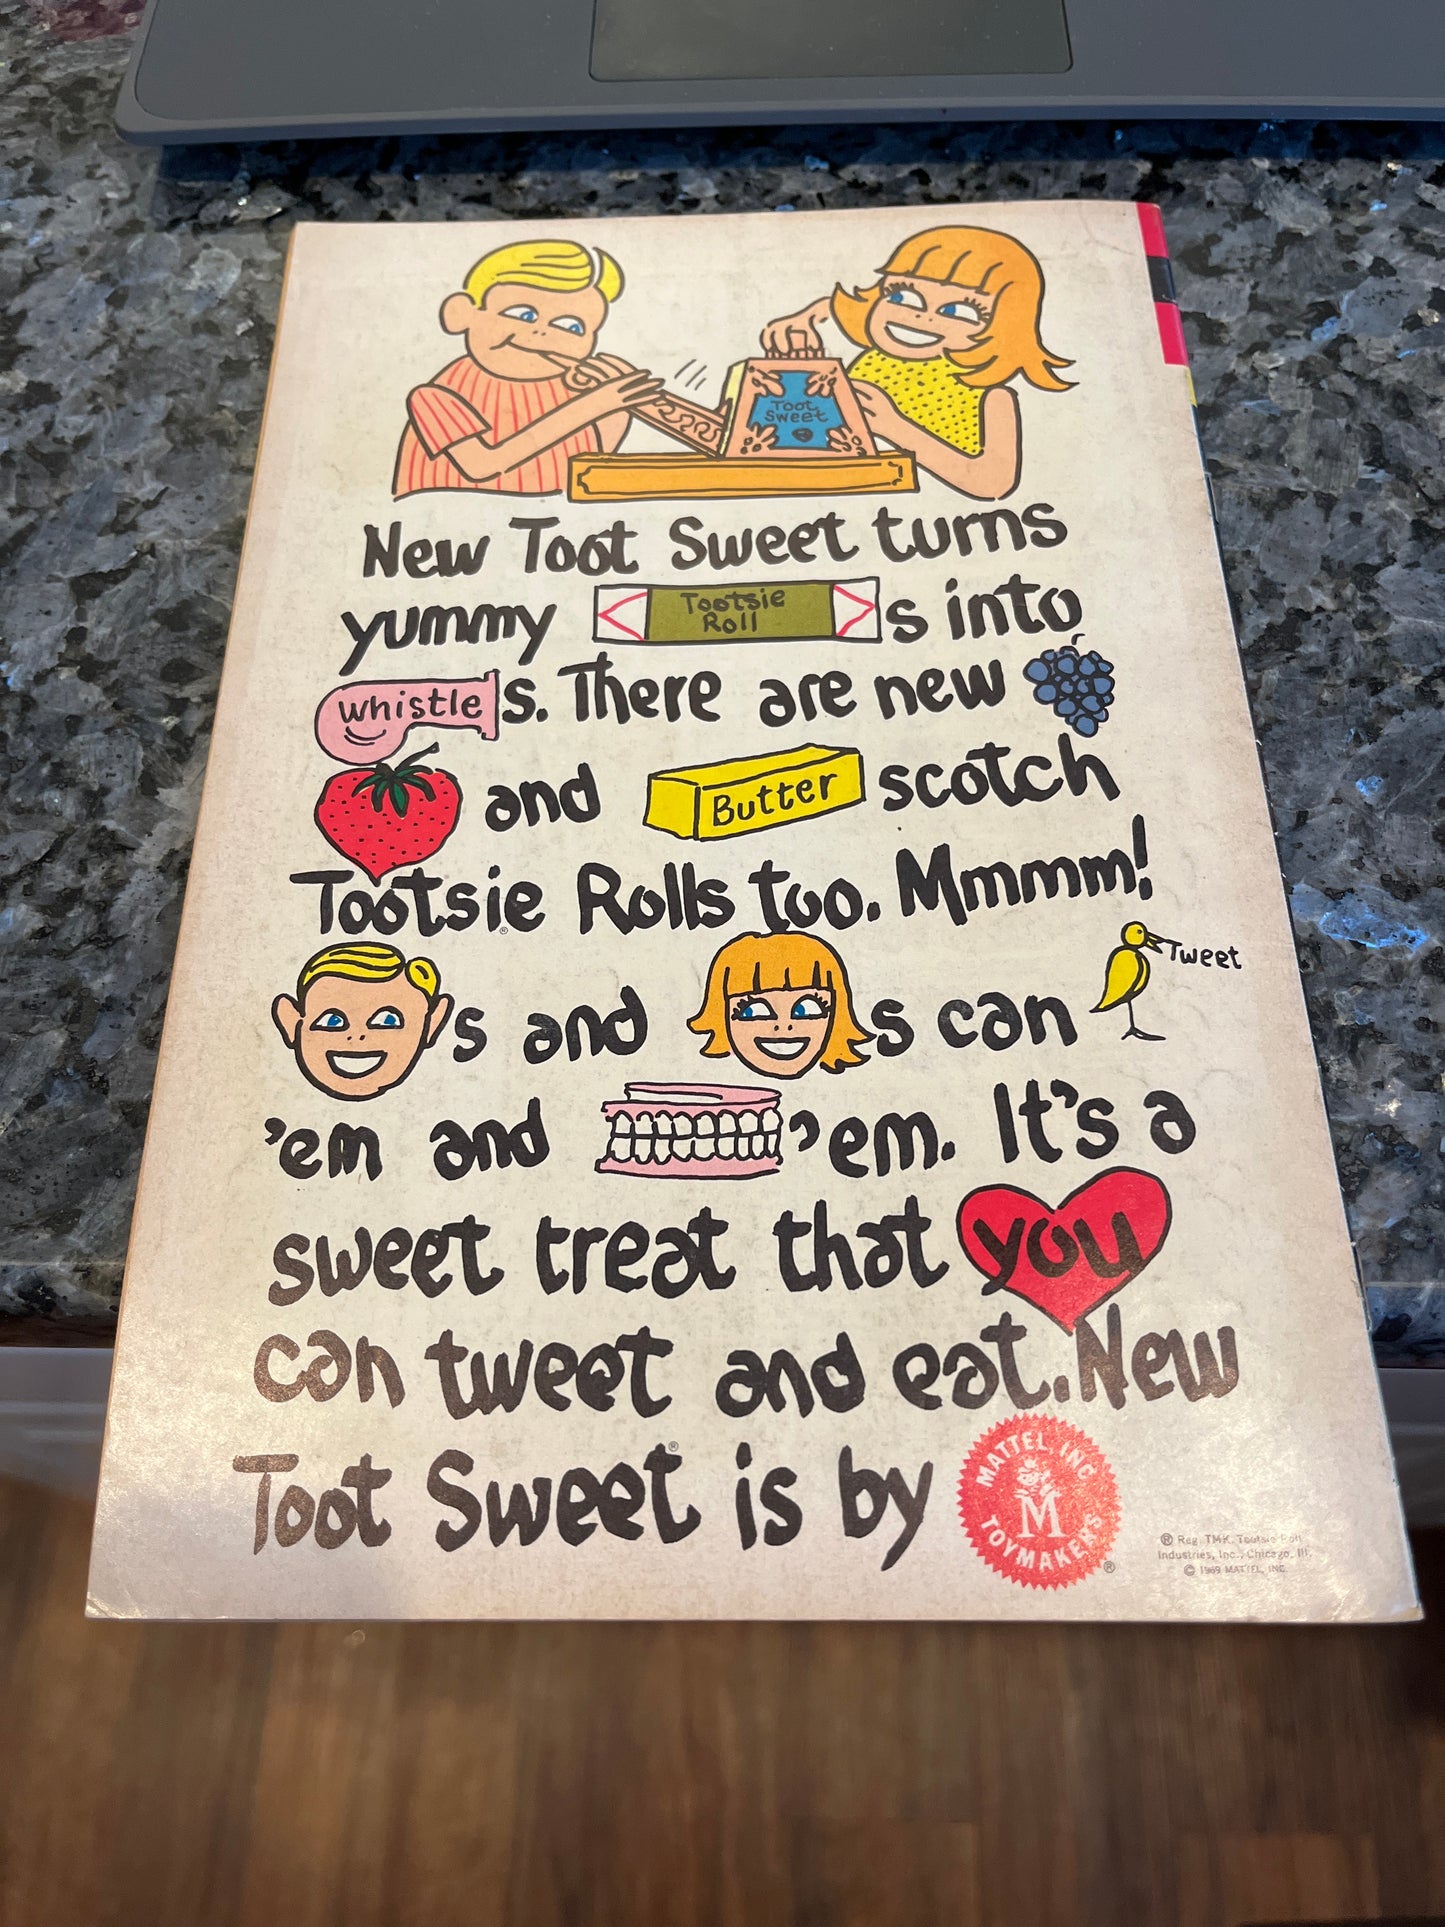 Toot
Sweet
New Toot Sweet turns
yummy Tootsie Roll s into
whistle s. There are new
and Butter scotch
Tootsie® Rolls too. Mmmm!
s and s can Tweet
'em and 'em. It's a
sweet treat that you
can tweet and eat. New
Toot Sweet® is by
MATTEL, INC.
M
TOYMAKERS
®
® Reg. TMK. Tootsie Roll
Industries, Inc., Chicago, Ill.
© 1969 MATTEL, INC.